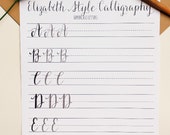 Elizabeth Style Calligraphy
A A A
B B B
C C C
D D D
E E E